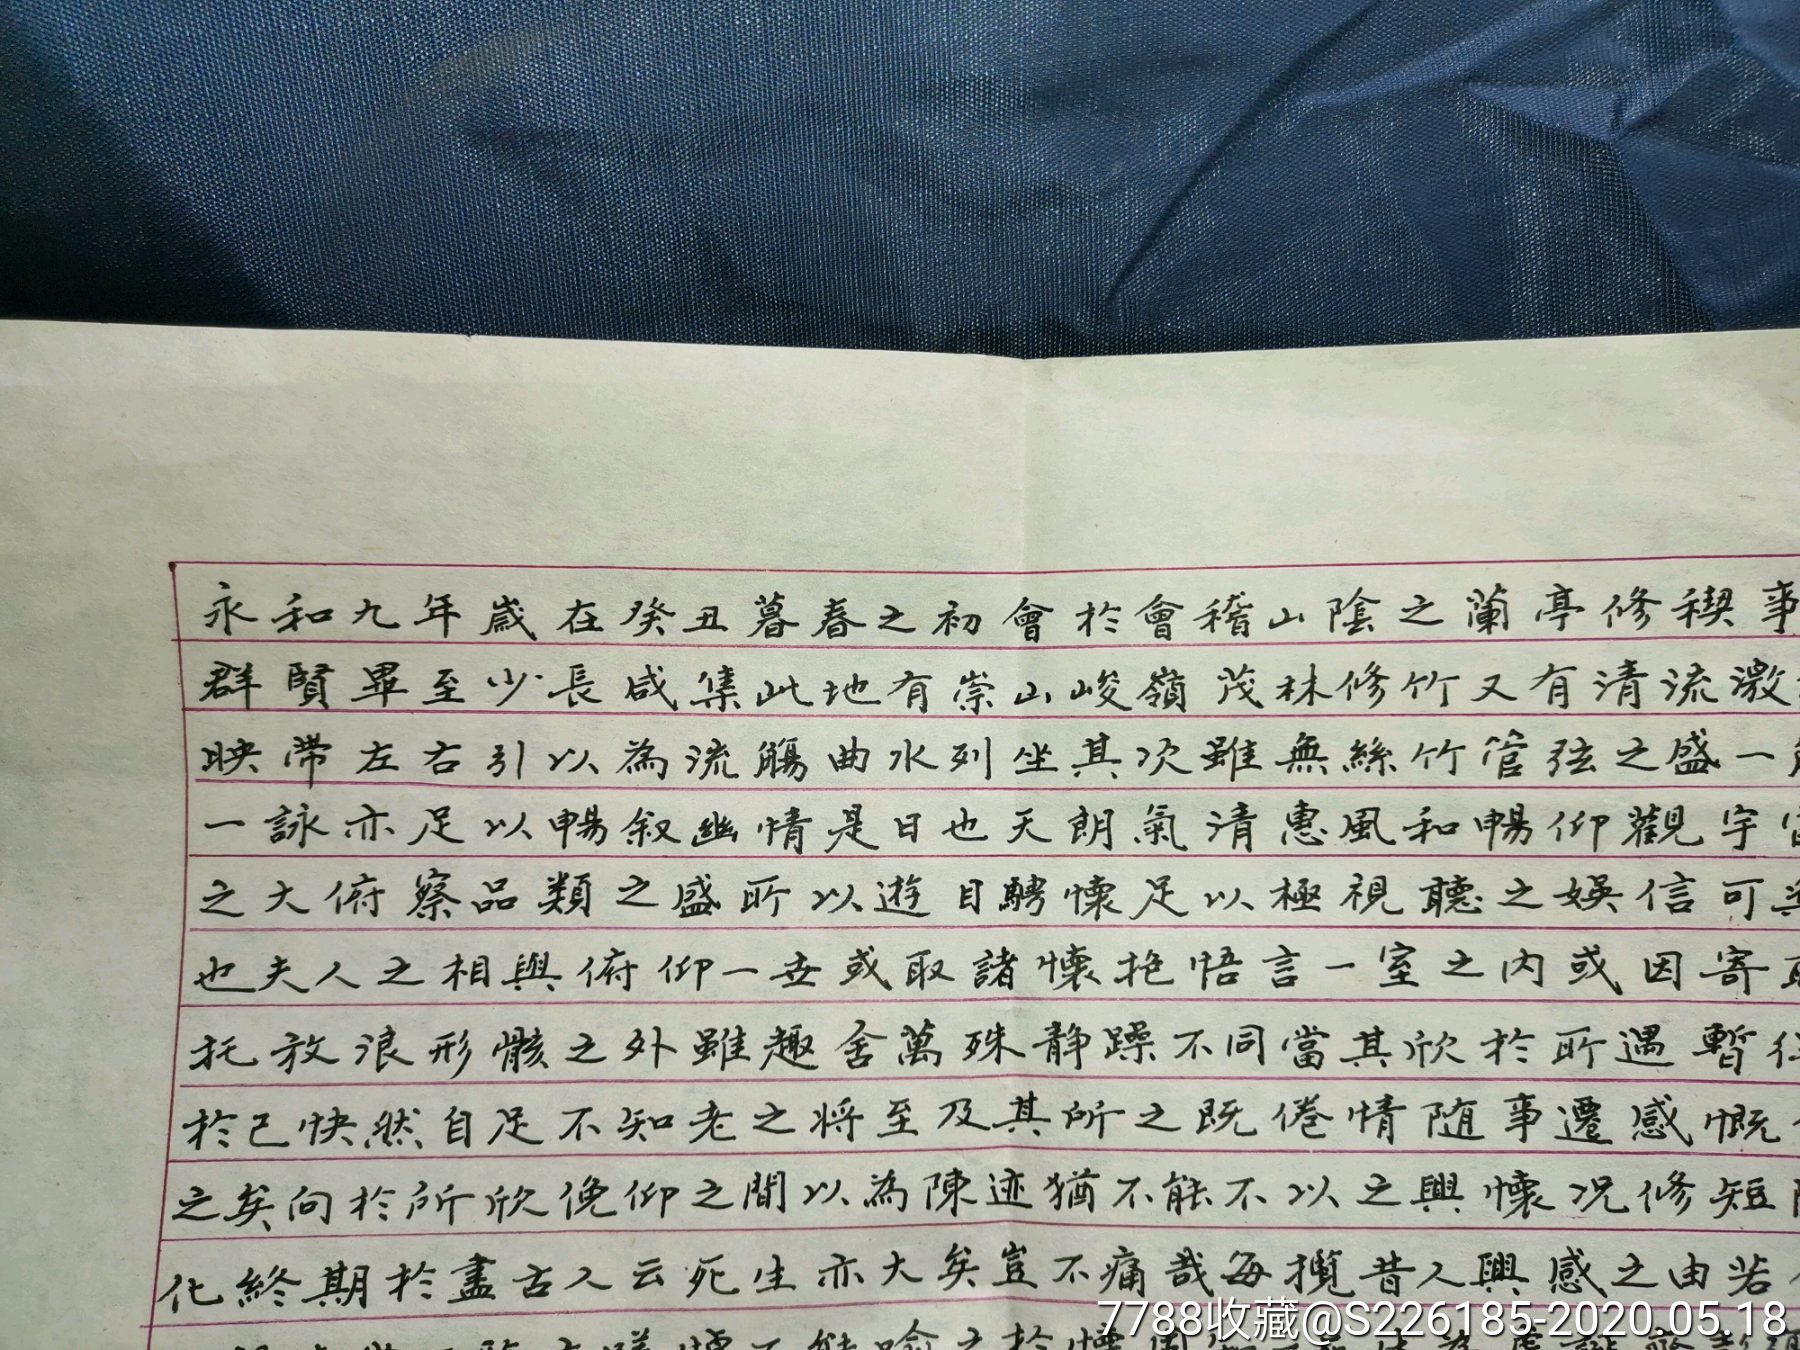 永和九年歲在癸丑暮春之初會於會稽山陰之蘭亭修稧事
群賢畢至少長咸集此地有崇山峻嶺茂林修竹又有清流激
映帶左右引以為流觴曲水列坐其次雖無絲竹管弦之盛一
一詠亦足以暢叙幽情是日也天朗氣清惠風和暢仰觀宇
之大俯察品類之盛所以遊目騁懷足以極視聽之娛信可
也夫人之相與俯仰一世或取諸懷抱悟言一室之內或因寄
托放浪形骸之外雖趣舍萬殊静躁不同當其欣於所遇暫
於己快然自足不知老之將至及其所之既倦情随事遷感慨
之矣向於所欣俛仰之間以為陳迹猶不能不以之興懷况修短
化終期於盡古人云死生亦大矣豈不痛哉每攬昔人興感之由若
不能喻之於懷固
7788收藏@S226185-2020.05.18